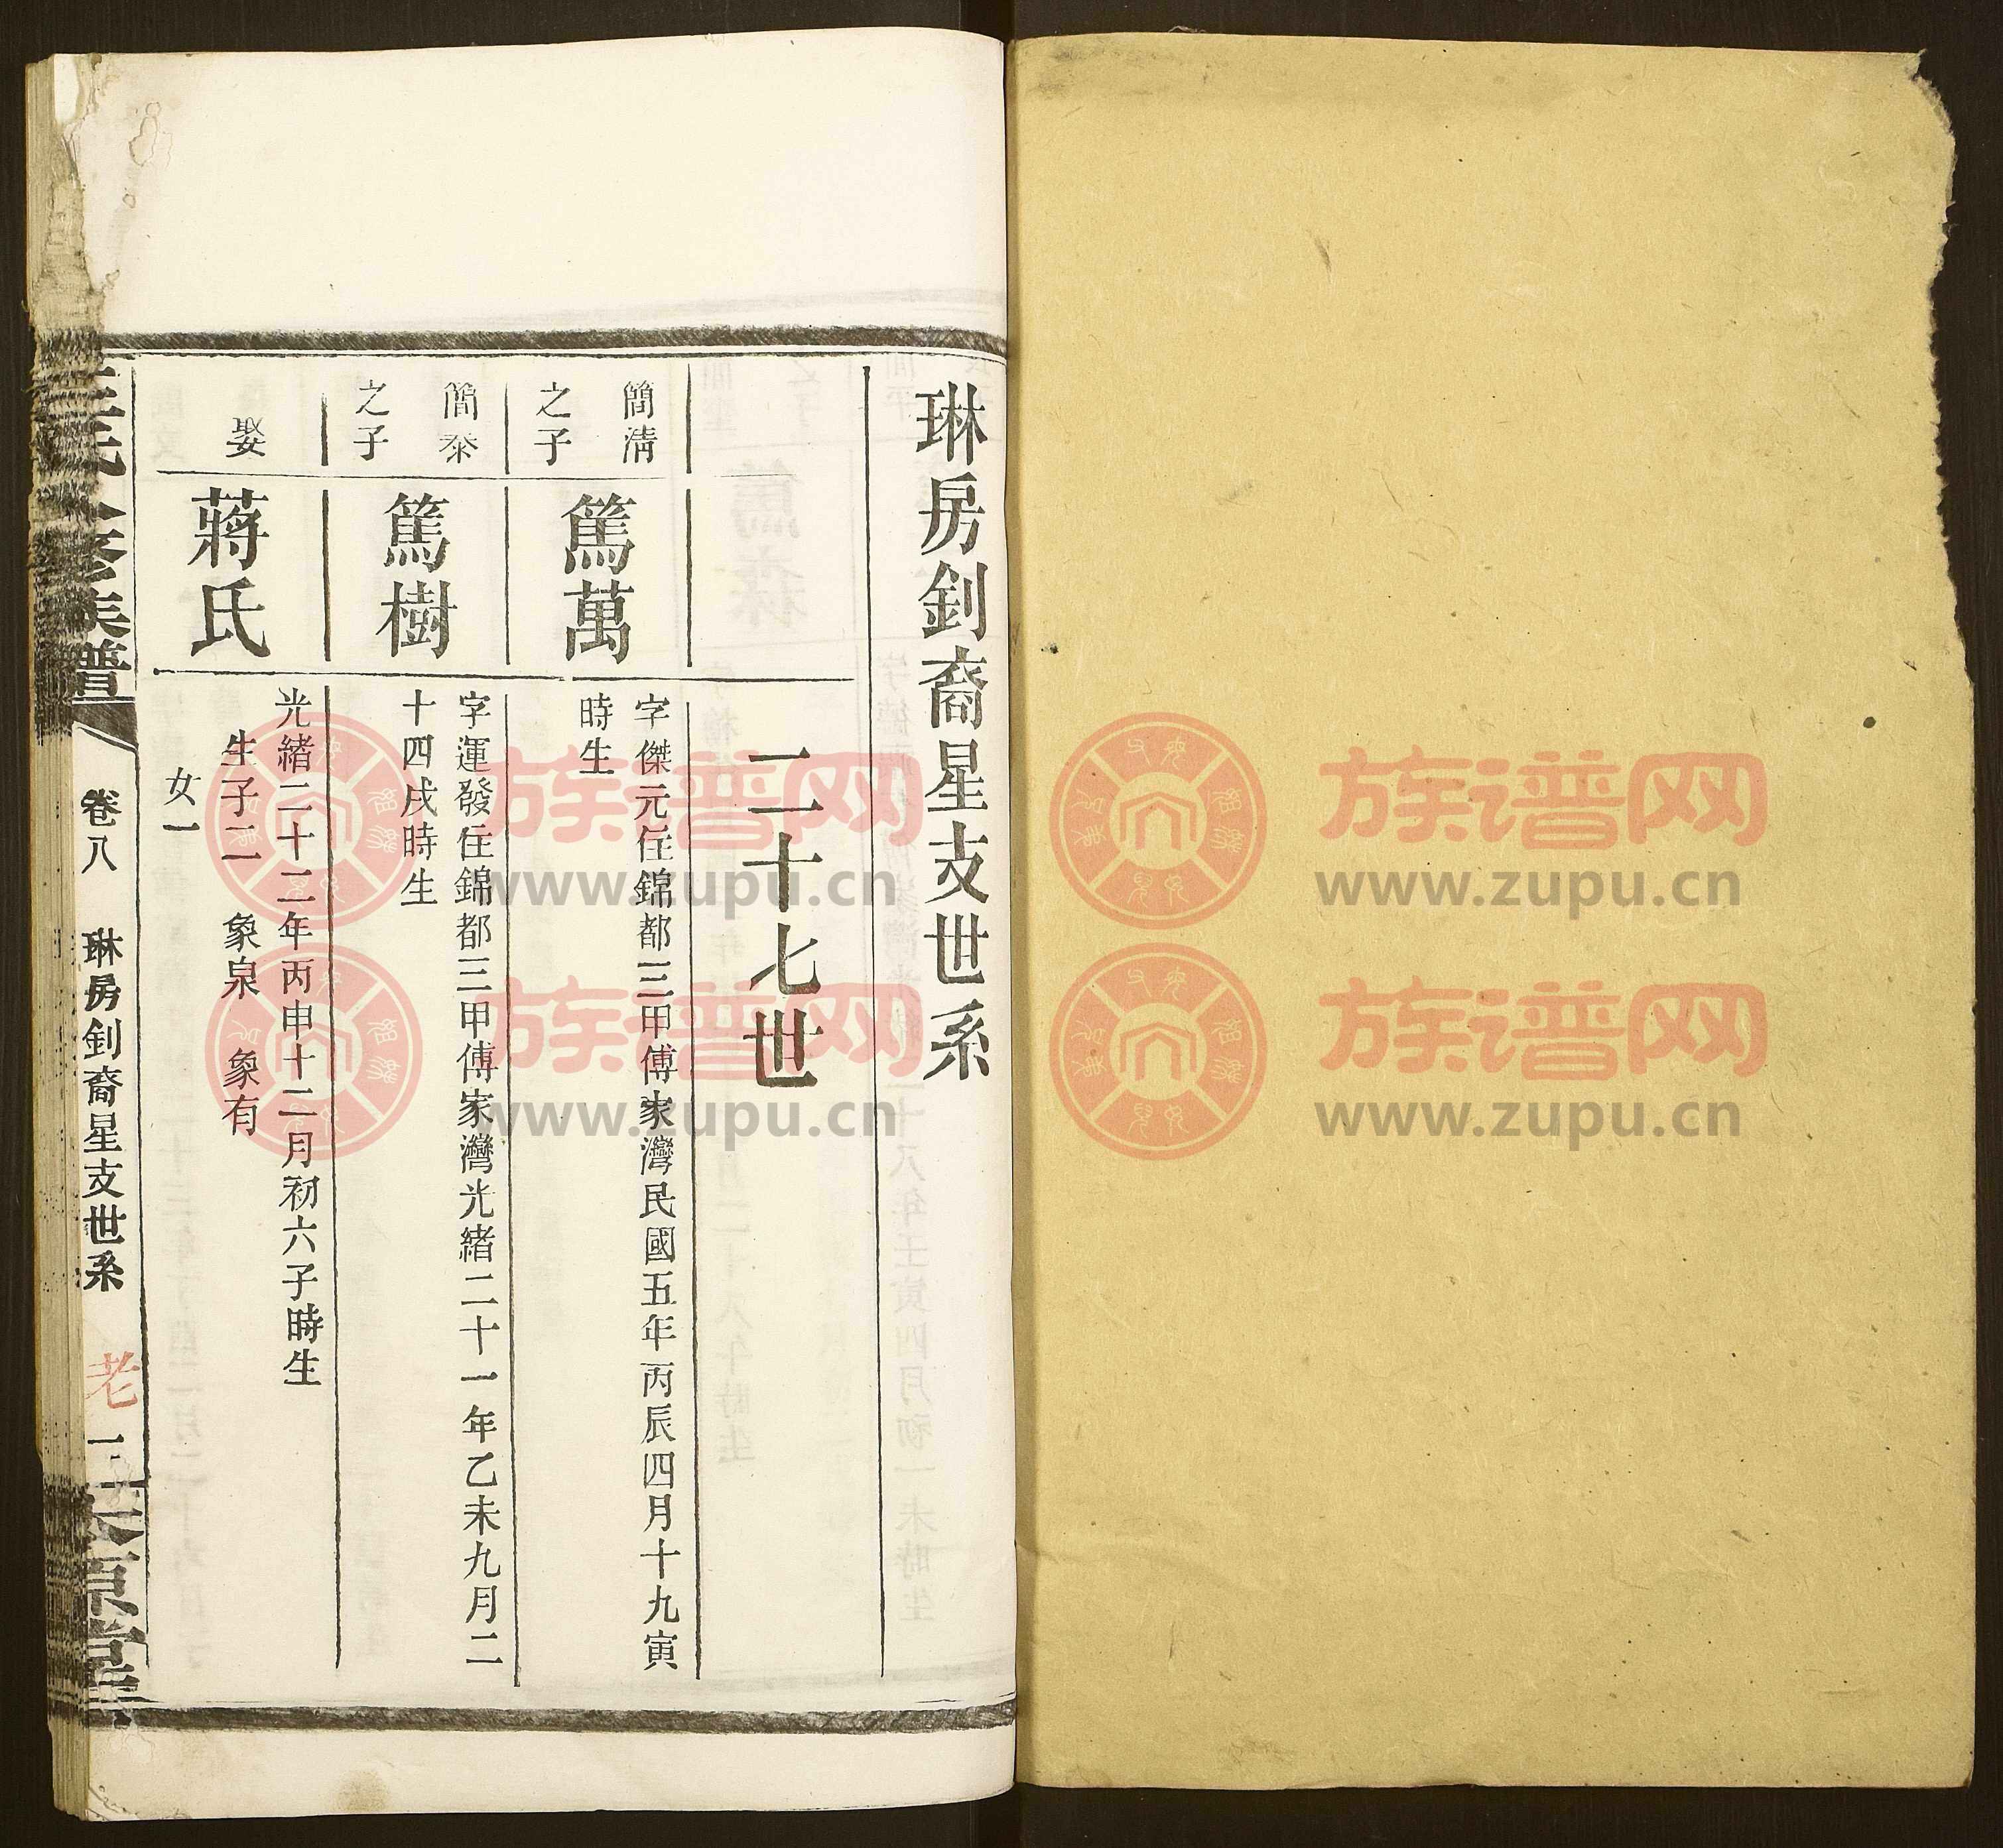 琳房釗裔星支世系
二十七世
簡淸
之子
篤萬
字傑元住錦都三甲傅家灣民國五年丙辰四月十九寅
時生
簡泰
之子
篤樹
字運發住錦都三甲傅家灣光緒二十一年乙未九月二
十四戌時生
娶
蔣氏
光緒二十二年丙申十二月初六子時生
生子二 象泉 象有
女一
氏八修族譜
卷八 琳房釗裔星支世系
老
原堂
族谱网
www.zupu.cn
族谱网
www.zupu.cn
族谱网
www.zupu.cn
族谱网
www.zupu.cn